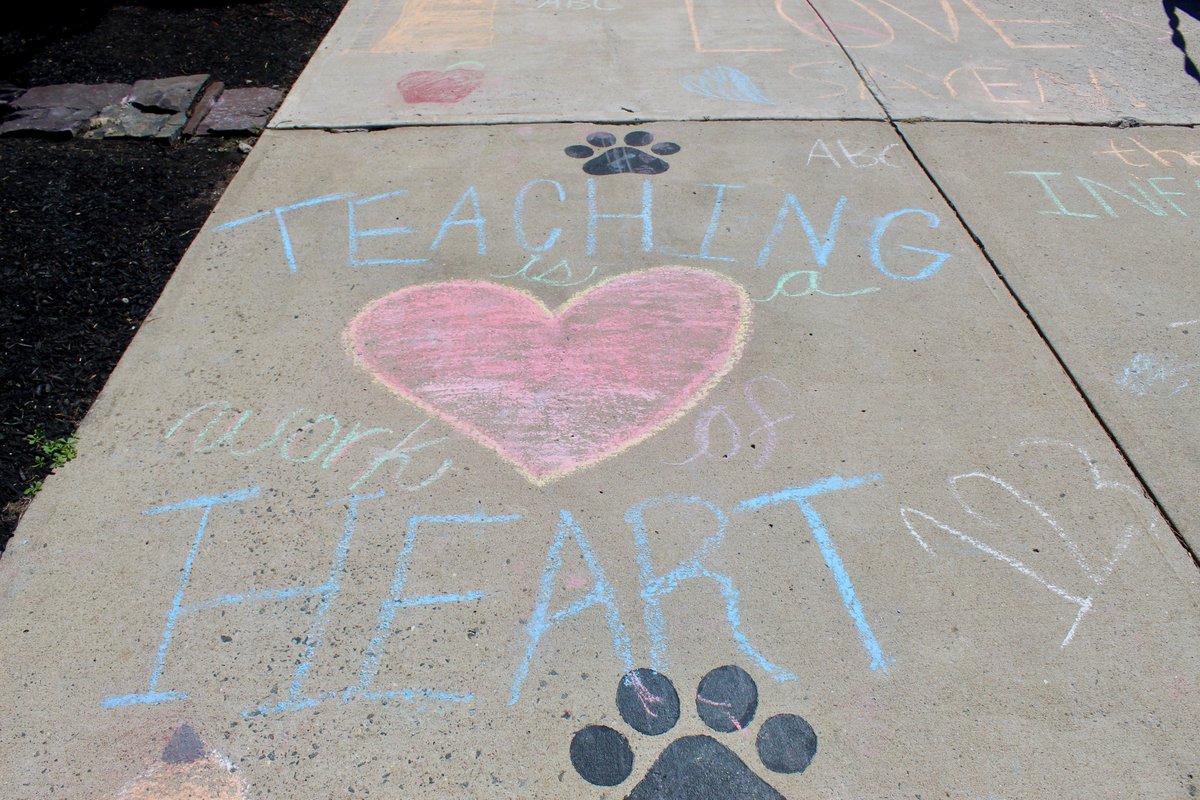 ABC
LOVE
SAYEN
ABC
the
TEACHING
INF
is a
work of
HEART